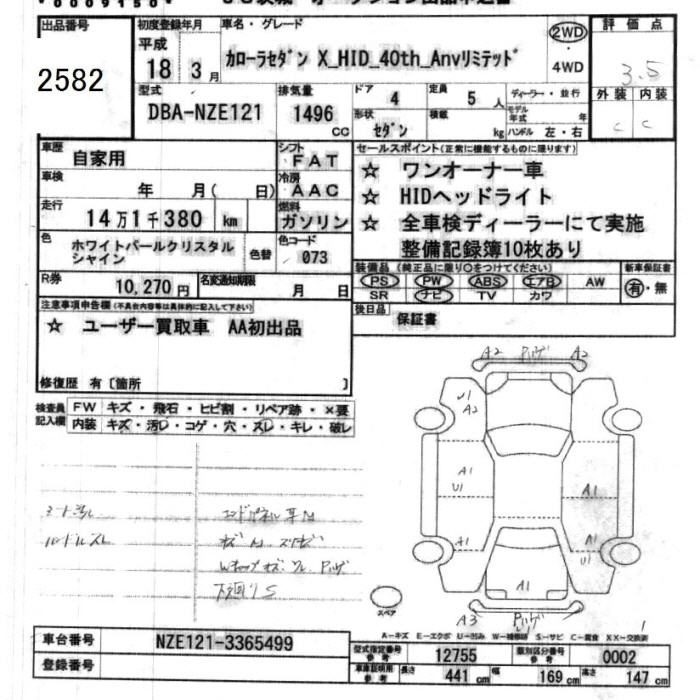 出品番号
2582
初度登録年月
平成
18 3月
車名・グレード
カローラセダン X_HID_40th_Anvリミテッド
2WD
・
4WD
評価点
3.5
外装 内装
C C
型式
DBA-NZE121
排気量
1496
CC
ドア 4
形状
セダン
定員 5 人
積載 kg
ディーラー・並行
モデル年式 年
ハンドル 左・右
車歴
自家用
シフト
FAT
車検
年 月( 日)
冷房
AAC
走行
14万1千380 km
燃料
ガソリン
色
ホワイトパールクリスタル
シャイン
色替
色コード
073
R券
10,270円
名変通知期限
月 日
セールスポイント(正常に機能するものに限ります)
☆ ワンオーナー車
☆ HIDヘッドライト
☆ 全車検ディーラーにて実施
整備記録簿10枚あり
装備品(純正品に限り○をつけてください)
PS PW ABS エアB AW
SR ナビ TV カワ
新車保証書
有・無
後日品
保証書
注意事項申告欄(不具合内容等は具体的に記入して下さい)
☆ ユーザー買取車 AA初出品
修復歴 有〔箇所 〕
検査員
記入欄
FW キズ・飛石・ヒビ割・リペア跡・×要
内装 キズ・汚レ・コゲ・穴・スレ・キレ・破レ
A2 A2
U1
A2
A1
U1
A1
A1
A1
U1
A1
A3
シート汚レ
ハンドルスレ
スペア
A-キズ E-エクボ U-凹み W-補修跡 S-サビ C-腐食 XX-交換済
車台番号 NZE121-3365499
登録番号
型式指定番号
参考
12755
類別区分番号
参考
0002
車庫証明用
参考
長さ 441 cm 幅 169 cm 高さ 147 cm